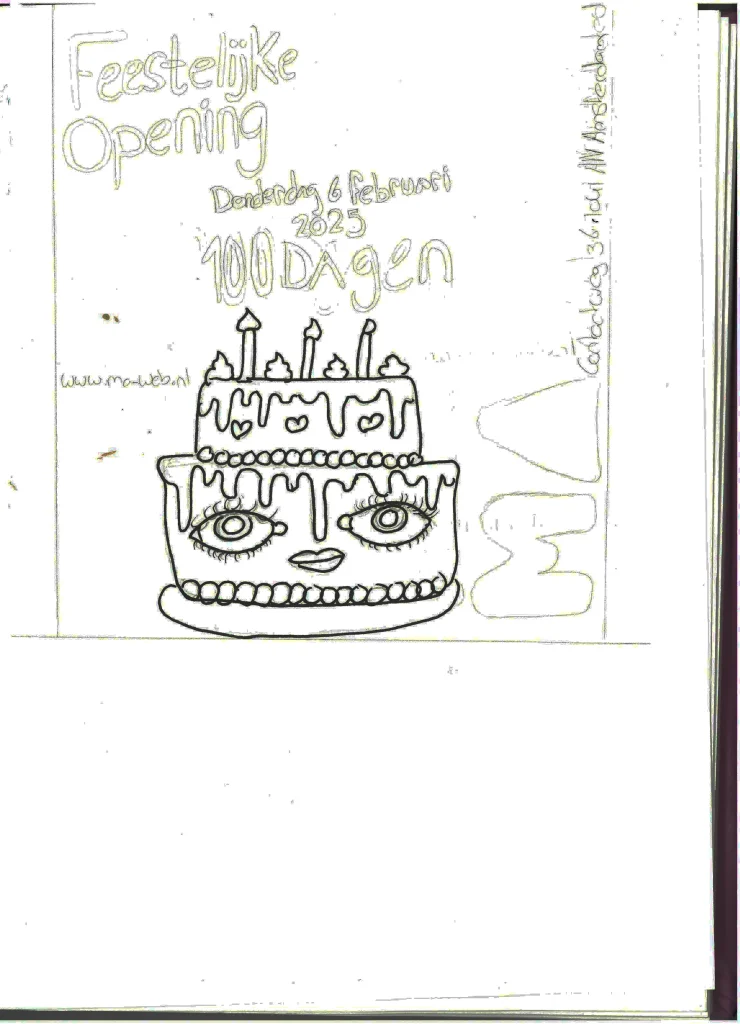 Feestelijke
Opening
Donderdag 6 februari
2025
100 DAgen
www.ma-web.nl
Contactweg 36 1014 AN Amsterdam
MA